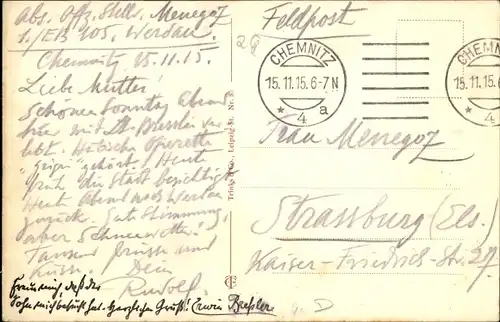 Abs. Offz. Stellv. Menegoz
1./EB 105. Werdau.
Chemnitz 15.11.15.
Liebe Mutter!
Schönen Sonntag Abend
hier mit Lt. ver-
lebt. Hübsche Operette
"Geiger" gehört. Heut
früh die Stadt besichtigt
Heut Abend nach Werdau
zurück. Gute Stimmung,
aber Schneewetter!
Tausend Grüsse und
Küsse. Dein
Rudolf.
Freue mich, daß der
Sohn mich besucht hat. Herzlichen Gruß! Erwin
Feldpost
CHEMNITZ
15.11.15.6-7N
* 4 a
CHEMNITZ
15.11.15.6
* 4
Frau Menegoz
Strassburg (Els.)
Kaiser-Friedrich-Str. 27
Trinks & Co., Leipzig